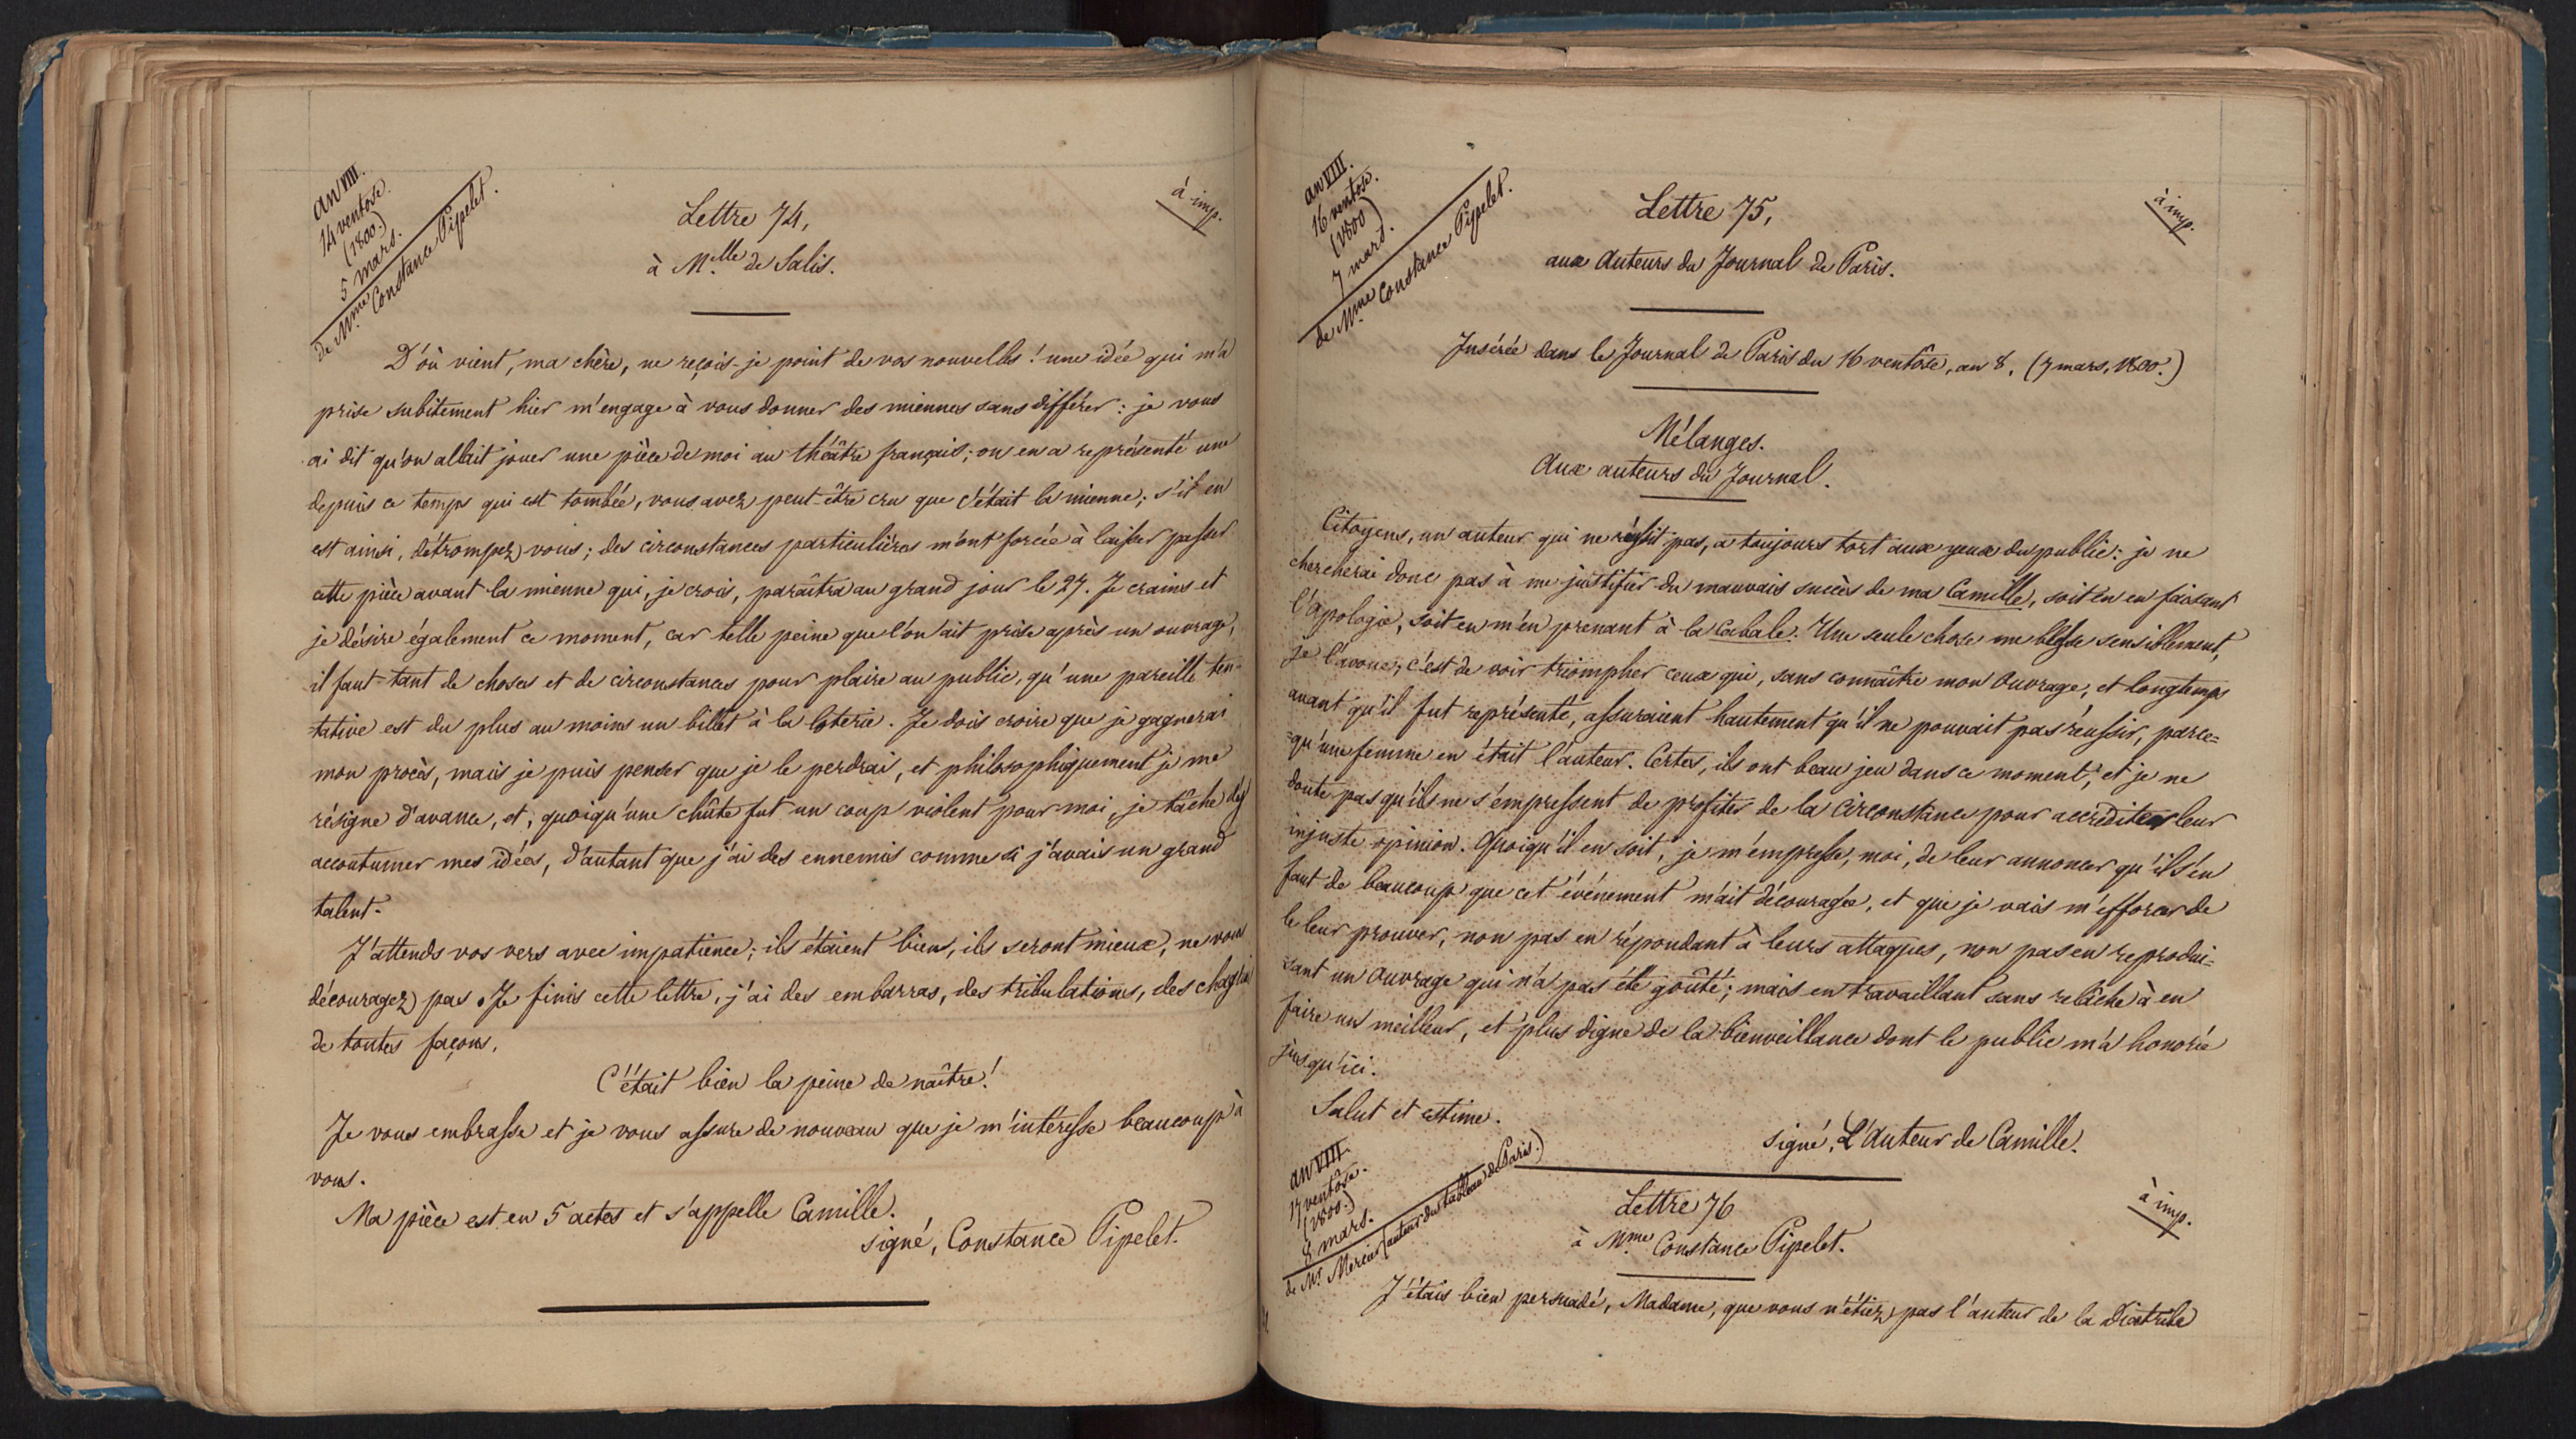 an VIII.
14 ventose.
(1800.)
5 mars.
de Mme Constance Pipelet.
à imp.
Lettre 74,
à M.lle de Salis.
D'où vient, ma chère, ne reçois-je point de vos nouvelles ! une idée qui m'a
prise subitement hier m'engage à vous donner des miennes sans différer : je vous
ai dit qu'on allait jouer une pièce de moi au théâtre français ; on en a représenté une
depuis ce temps qui est tombée, vous avez peut-être cru que c'était la mienne ; s'il en
est ainsi, détrompez vous ; des circonstances particulières m'ont forcée à laisser passer
cette pièce avant la mienne qui, je crois, paraîtra au grand jour le 27. Je crains et
je désire également ce moment, car telle peine que l'on ait prise après un ouvrage,
il faut tant de choses et de circonstances pour plaire au public, qu'une pareille ten-
tative est du plus au moins un billet à la loterie. Je dois croire que je gagnerai
mon procès, mais je puis penser que je le perdrai, et philosophiquement je me
résigne d'avance, et, quoiqu'une chûte fut un coup violent pour moi, je tâche d'y
accoutumer mes idées, d'autant que j'ai des ennemis comme si j'avais un grand
talent.
J'attends vos vers avec impatience ; ils étaient biens, ils seront mieux, ne vous
découragez pas. Je finis cette lettre, j'ai des embarras, des tribulations, des chagrins
de toutes façons,
C'était bien la peine de naître !
Je vous embrasse et je vous assure de nouveau que je m'intéresse beaucoup à
vous.
Ma pièce est en 5 actes et s'appelle Camille.
signé, Constance Pipelet.
an VIII.
16 ventose.
(1800)
7 mars.
de Mme Constance Pipelet.
à imp.
Lettre 75,
aux Auteurs du Journal de Paris.
Insérée dans le Journal de Paris du 16 ventôse, an 8, (7 mars, 1800.)
Mélanges.
Aux auteurs du Journal.
Citoyens, un auteur qui ne réussit pas, a toujours tort aux yeux du public : je ne
chercherai donc pas à me justifier du mauvais succès de ma Camille, soit en en faisant
l'apologie, soit en m'en prenant à la Cabale. Une seule chose me blesse sensiblement,
je l'avoue, c'est de voir triompher ceux qui, sans connaître mon Ouvrage, et longtemps
avant qu'il fut représenté, assuraient hautement qu'il ne pouvait pas réussir, parce=
=qu'une femme en était l'auteur. Certes, ils ont beau jeu dans ce moment, et je ne
doute pas qu'ils ne s'empressent de profiter de la circonstance pour accréditer leur
injuste opinion. Quoiqu'il en soit, je m'empresse, moi, de leur annoncer qu'il s'en
faut de beaucoup que cet événement m'ait découragée, et que je vais m'efforcer de
le leur prouver, non pas en répondant à leurs attaques, non pas en reprodui=
sant un Ouvrage qui n'a pas été goûté ; mais en travaillant sans relâche à en
faire un meilleur, et plus digne de la bienveillance dont le public m'a honorée
jusqu'ici.
Salut et estime.
signé, L'Auteur de Camille.
an VIII.
17 ventôse.
(1800.)
8 mars.
de Mr. Mercier (auteur du tableau de Paris.)
à imp.
Lettre 76
à Mme Constance Pipelet.
J'étais bien persuadé, Madame, que vous n'étiez pas l'auteur de la Diatribe